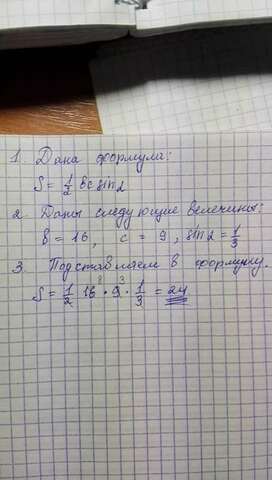 1. Дана формула:
S = 1/2 bc sin α
2. Даны следующие величины:
b = 16, c = 9, sin α = 1/3
3. Подставляем в формулу.
S = 1/2 16⁸ · 9³ · 1/3 = 24